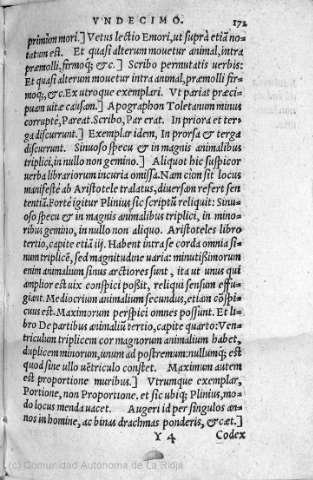 VNDECIMO. 172
primùm mori.] Vetus lectio Emori, ut suprà etiã no-
tatum est. Et quasi alterum mouetur animal, intra
præmolli, firmoq; &c.] Scribo permutatis uerbis:
Et quasi alterum mouetur intra animal, præmolli fir-
moq;, &c. Ex utroque exemplari. Vt pariat præci-
puam uitæ causam.] Apographon Toletanum minus
corruptè, Pareat. Scribo, Par erat. In priora et ter-
ga discurunt.] Exemplar idem, In prorsa & terga
discurunt. Sinuoso specu & in magnis animalibus
triplici, in nullo non gemino.] Aliquot hic suspicor
uerba librariorum incuria omissa. Nam cùm sit locus
manifestè ab Aristotele tralatus, diuersam refert sen
tentiã. Fortè igitur Plinius sic scriptũ reliquit: Sinu-
oso specu & in magnis animalibus triplici, in mino-
ribus gemino, in nullo non aliquo. Aristoteles libro
tertio, capite etiã iij. Habent intra se corda omnia si-
num triplicẽ, sed magnitudine uaria: minutißimorum
enim animalium sinus arctiores sunt, ita ut unus qui
amplior est uix conspici poßit, reliqui sensum effu-
giant. Mediocrium animalium secundus, etiam cõspi-
cuus est. Maximorum perspici omnes possunt. Et li-
bro De partibus animaliũ tertio, capite quarto: Ven-
triculum triplicem cor magnorum animalium habet,
duplicem minorum, unum ad postremum: nullumq; est
quod sine ullo uẽtriculo constet. Maximum autem
est proportione muribus.] Vtrunque exemplar,
Portione, non Proportione, et sic ubiq; Plinius, mo-
dò locus menda uacet. Augeri id per singulos an-
nos in homine, ac binas drachmas ponderis, &cæt.]
Y 4 Codex
(c) Comunidad Autónoma de La Rioja